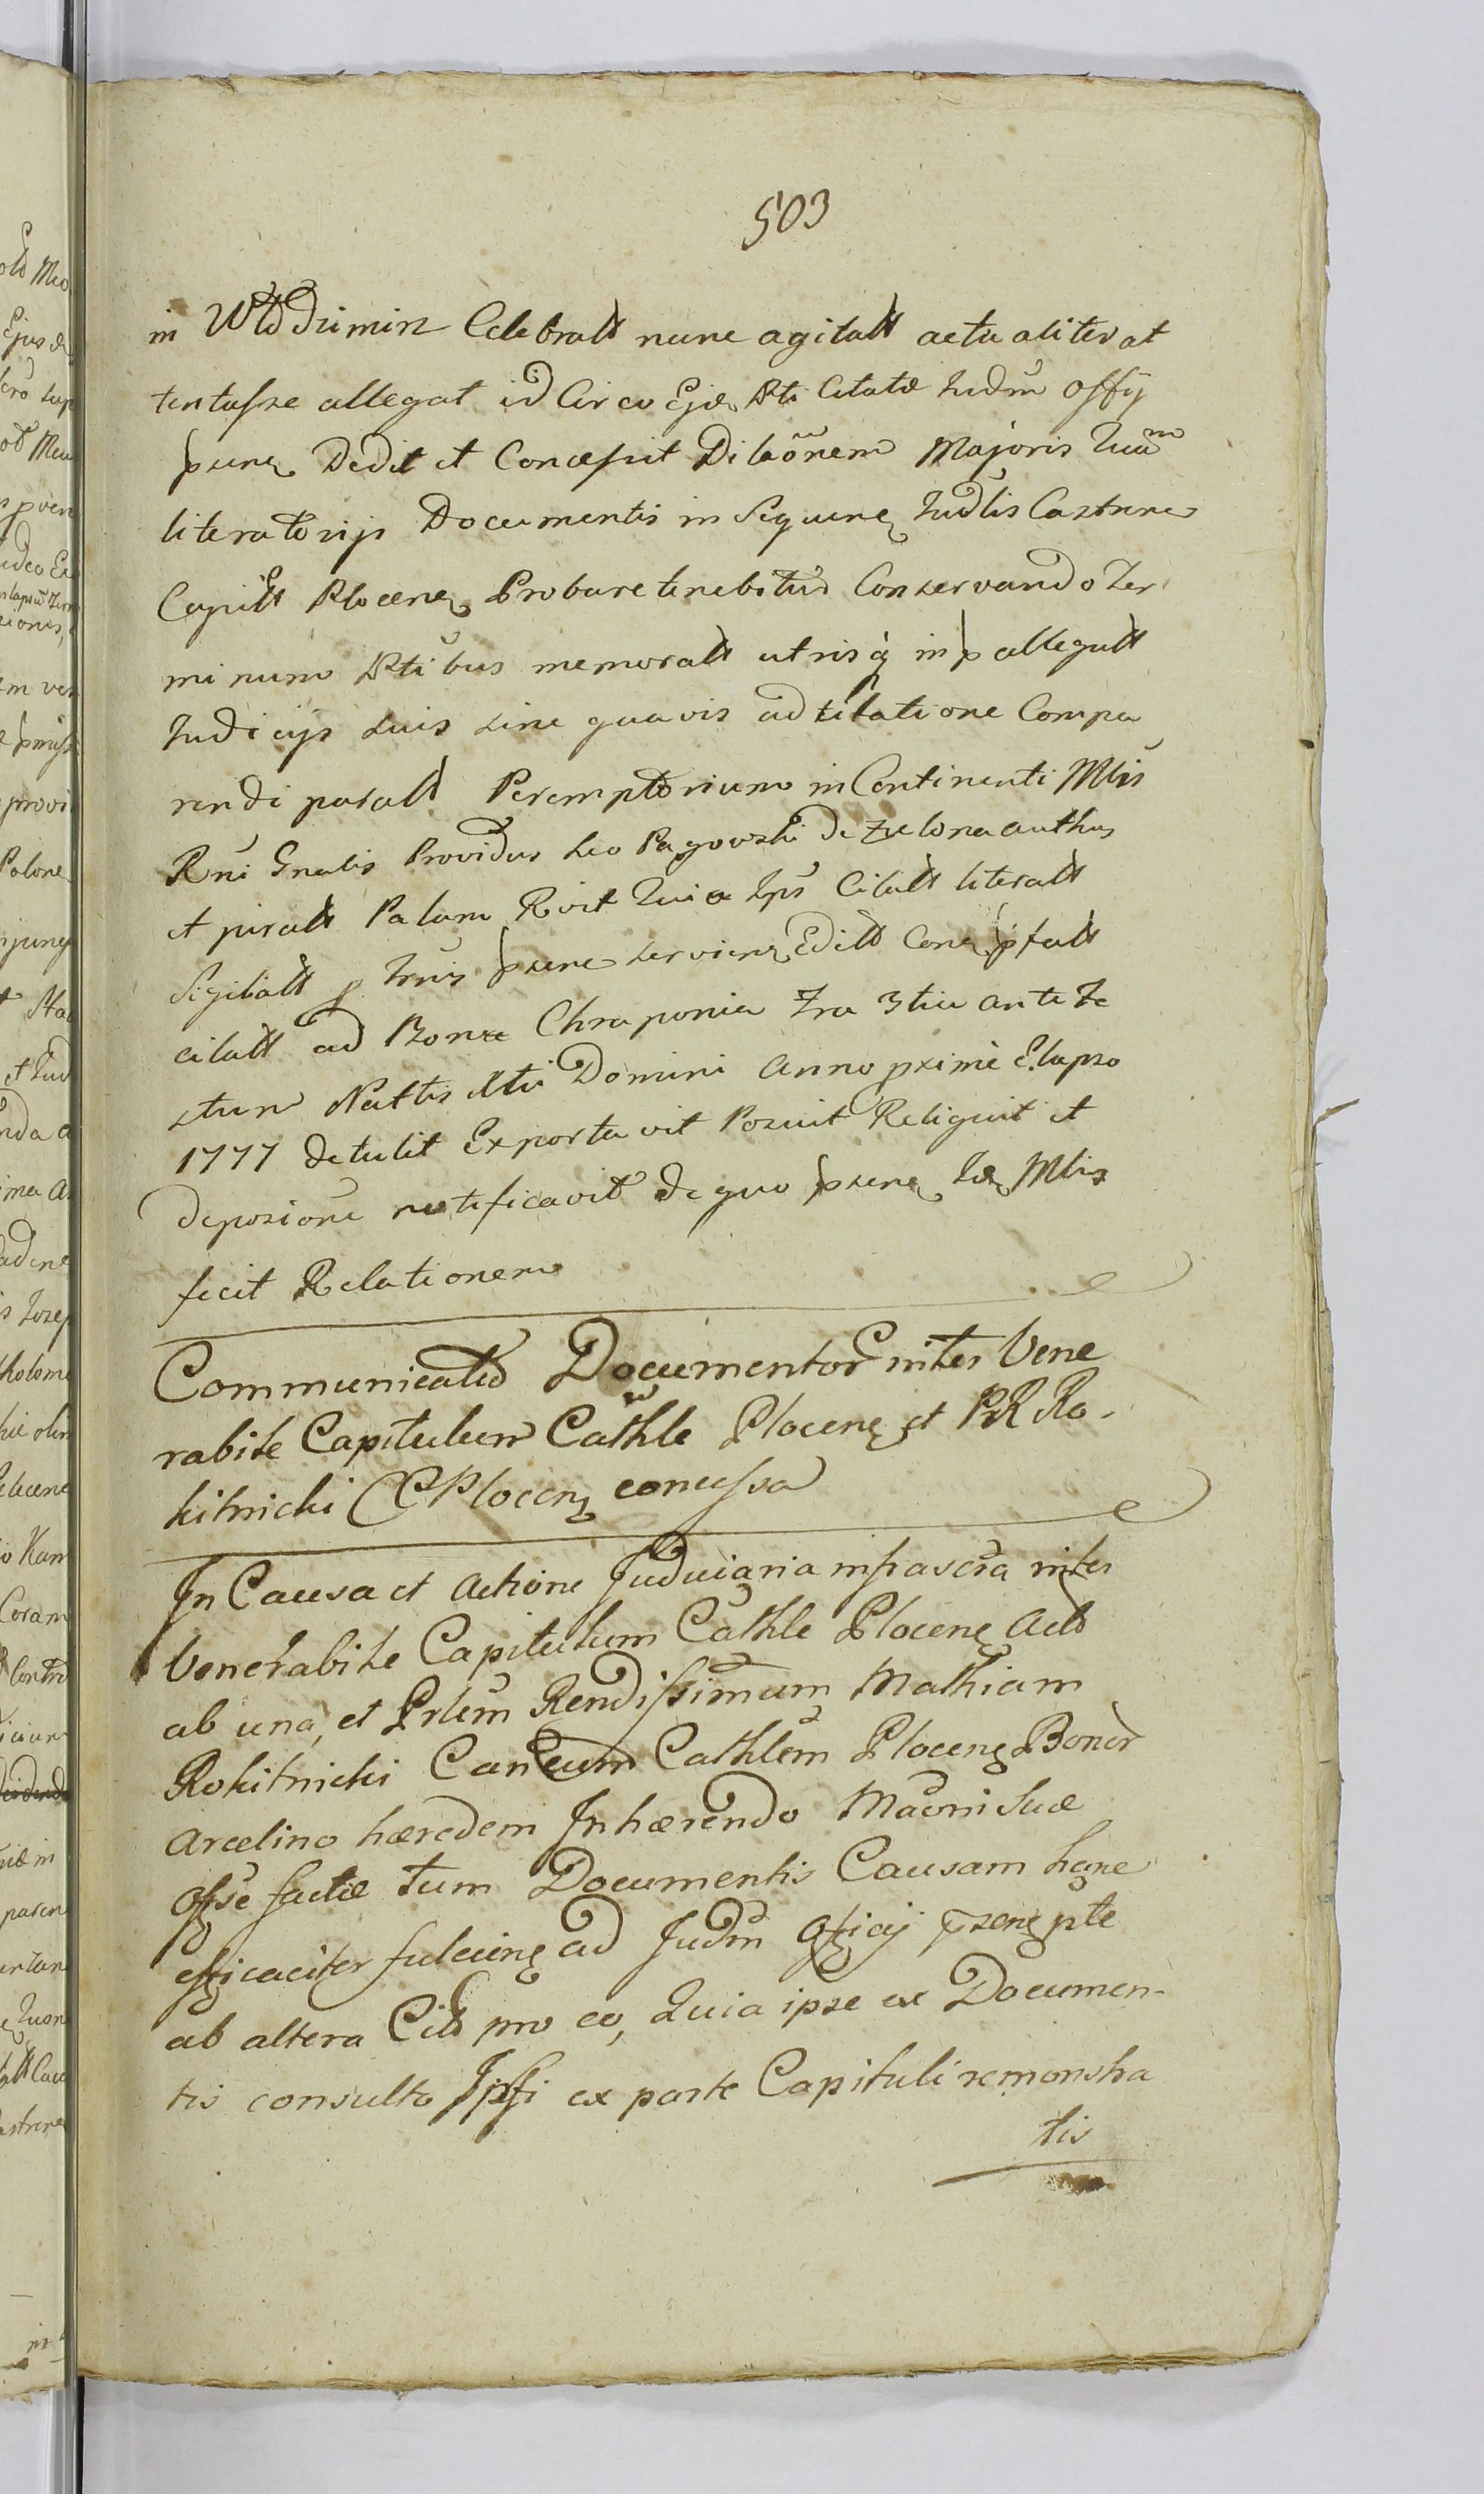 503
in Celebratt nunc agitatt actualiter at
tentasse allegat id Circo Ejd Pti Citatæ Judm Offij
psens Dedit et Concessit Dilaõnem Majoris Quam
literatorijs Documentis in Sequens Judlis Castrens
Capitt Plocens Probare tenebitur Conservando Ter
minum Ptibus memoratt utrisq in p allegatt
Judicijs suis sine quavis adcitatione Compa
rendi paratt Peremptorium in Continenti Mtris
Rni Gnalis Providus Leo Pagowski de authus
et juratt Palam Rvit Quia Citatt literatt
Sigillatt p psens serviens Editt
citatt ad Bona Chraponia Fra 3tia ante Fe
stum Nattis Xti Domini Anno pximè Elapso
1777 detulit Exportavit Posuit Reliquit et
deposione notificavit de quo psens Idem Mtris
fecit Relationem
Communicatio Documentor inter Vene
rabile Capitulum Cathle Plocens et PR Ro-
kitnicki CPlocens concessa
In Causa et Actione Judiciaria infrascra inter
Venerabile Capitulum Cathle Plocens Acto
ab una, et Prlem Rendissimum Mathiam
Rokitnicki Cancum Cathlem Plocens Bonor
Arcelino hæredem Inhærendo Maõni suæ
offse factæ tum Documentis Causam hanc
efficaciter fulciens ad Judm Officij psens pte
ab altera Citt pro eo, Quia ipse ex Documen-
tis consulto Ipsi ex parte Capituli remonstra
tis